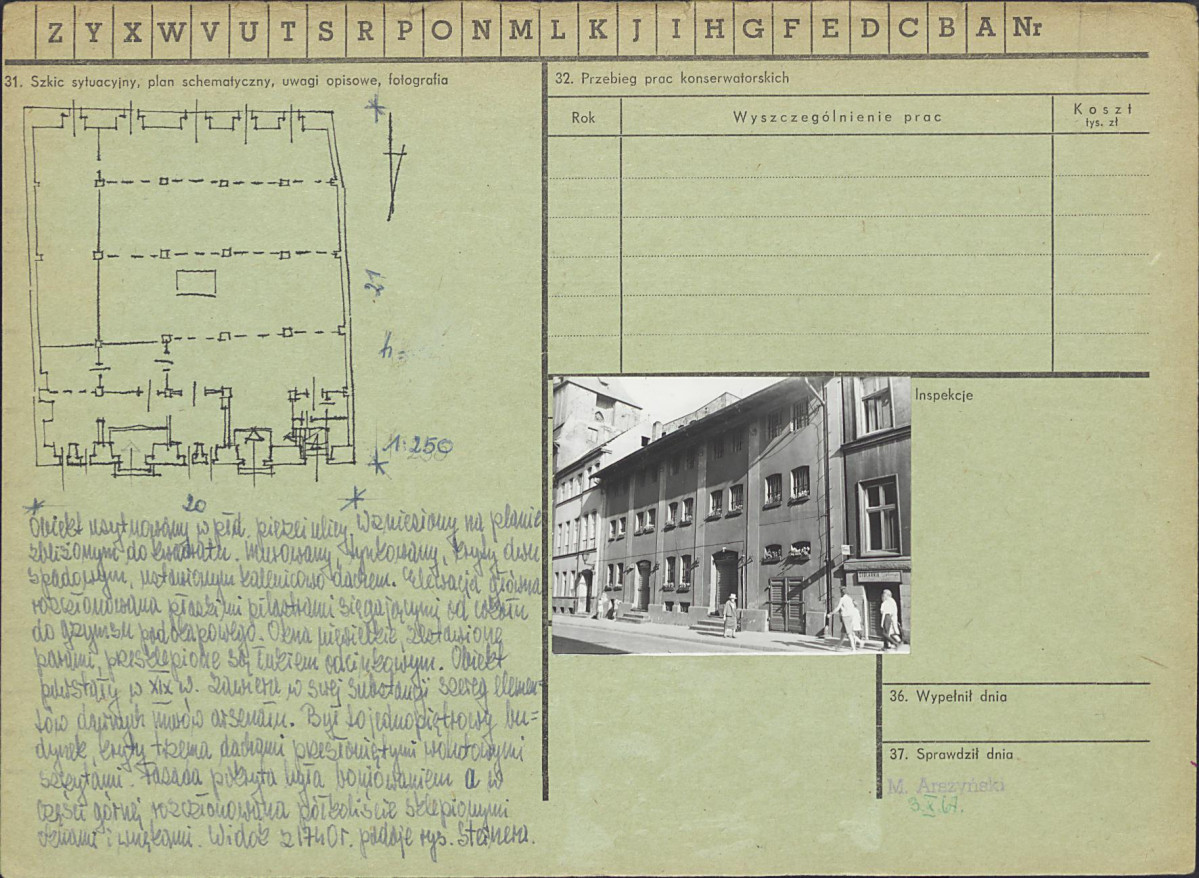 Z Y X W V U T S R P O N M L K J I H G F E D C B A Nr
31. Szkic sytuacyjny, plan schematyczny, uwagi opisowe, fotografia
21
h=
1:250
20
Obiekt usytuowany w płd. pierzei ulicy. Wzniesiony na planie
zbliżonym do kwadratu. Murowany, tynkowany, kryty dwu
spadowym, ustawionym kalenicowo dachem. Elewacja główna
rozczłonowana płaskimi pilastrami sięgającymi od cokołu
do gzymsu podokapowego. Okna niewielkie, zestawione
parami, przesklepione są łukiem odcinkowym. Obiekt
powstały w XIX w. zawiera w swej substancji szereg elemen-
tów dawnych murów arsenału. Był to jednopiętrowy bu=
dynek, kryty trzema dachami przesłoniętymi wolutowymi
szczytami. Fasada pokryta była boniowaniem a w
części górnej rozczłonowana półkoliście sklepionymi
oknami i wnękami. Widok z 1740r. podaje rys. Steinera.
32. Przebieg prac konserwatorskich
Rok
Wyszczególnienie prac
Koszt
tys. zł
Inspekcje
36. Wypełnił dnia
37. Sprawdził dnia
M. Arszyński
3.X.67.